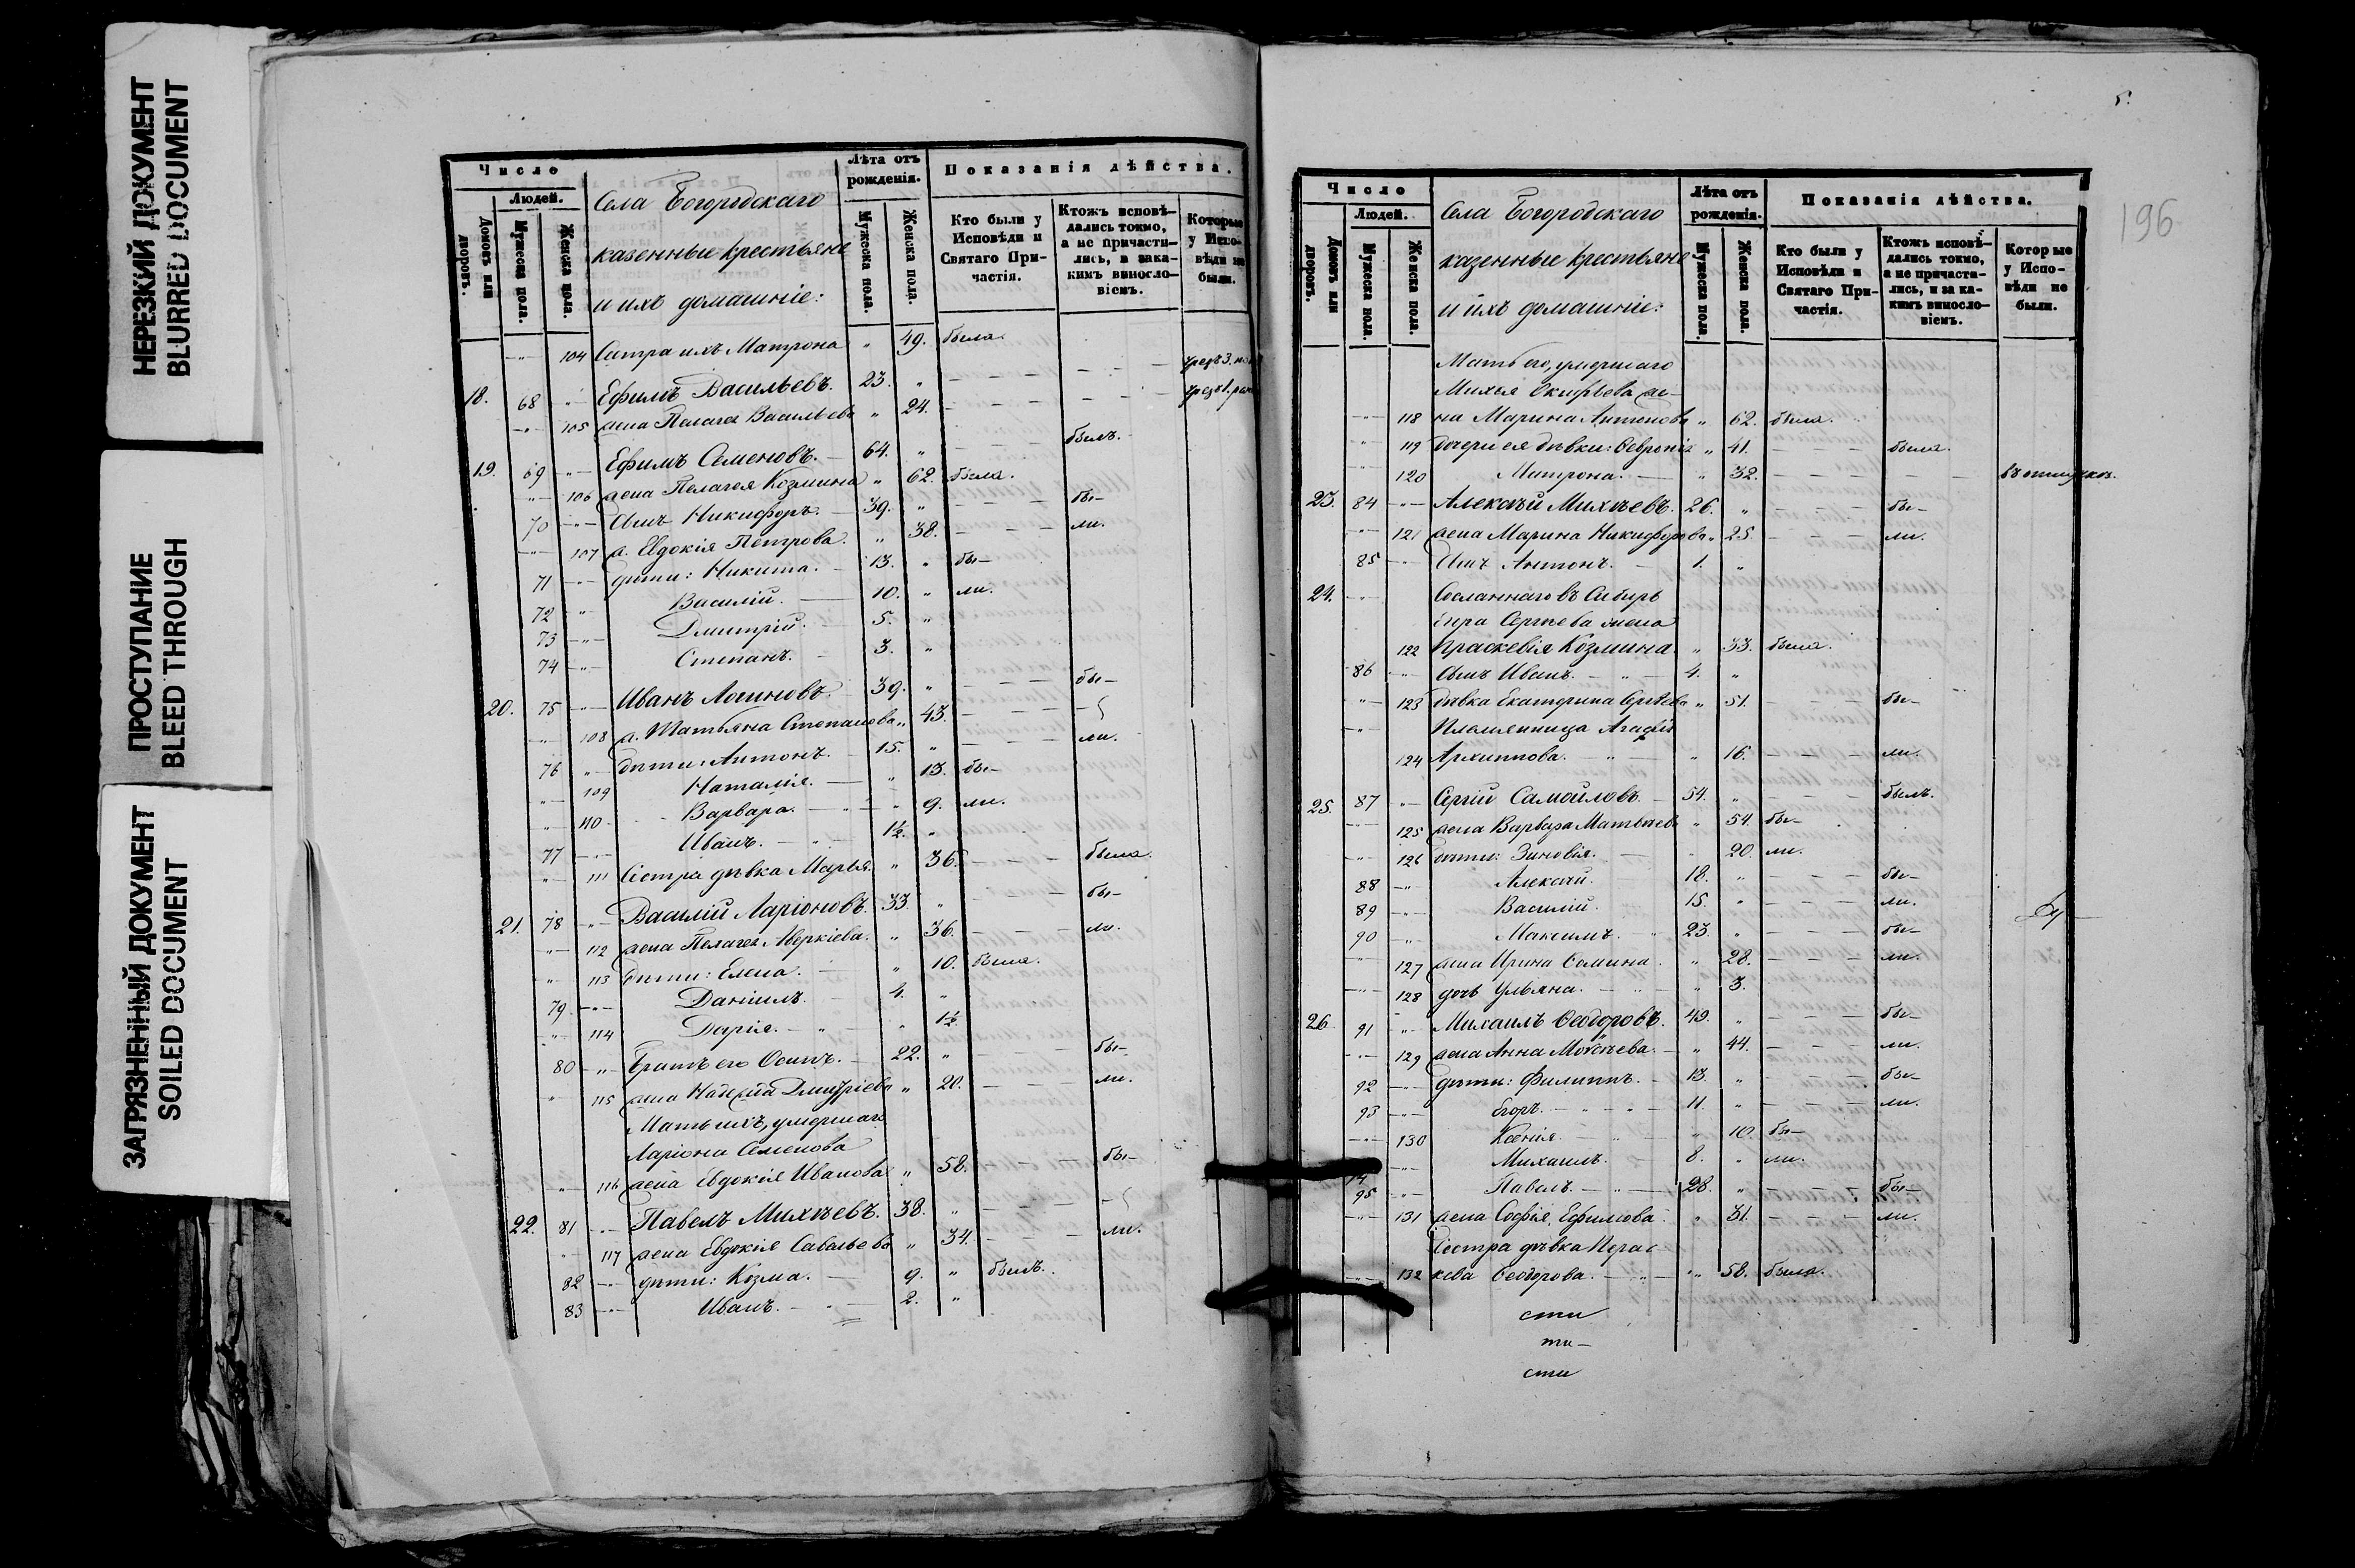 НЕРЕЗКИЙ ДОКУМЕНТ
BLURRED DOCUMENT
ПРОСТУПАНИЕ
BLEED THROUGH
ЗАГРЯЗНЕННЫЙ ДОКУМЕНТ
SOILED DOCUMENT
Число
Людей.
Домовъ или дворовъ.
Мужеска пола.
Женска пола.
Села Богородскаго
казенные крестьяне
и ихъ домашніе:
Лѣта отъ рожденія.
Мужеска пола.
Женска пола.
Показанія дѣйства.
Кто были у Исповѣди и Святаго Причастія.
Ктожъ исповѣдались токмо, а не причастились, и за какимъ винословіемъ.
Которые у Исповѣди не были.
104 Сестра ихъ Матрона " 49. была.
18. 68 " Ефимъ Васильевъ. 23. "
" 105 жена Пелагея Васильева " 24.
19. 69 " Ефимъ Семеновъ. 64. " былъ.
" 106 жена Пелагея Козмина " 62. была.
70 " Сынъ Никифоръ. 39. " бы-
" 107 ж. Евдокія Петрова. " 38. ли.
71 " дѣти: Никита. 13. " бы-
72 " Василій. 10. " ли.
73 " Дмитрій. 5. "
74 " Степанъ. 3. "
20. 75 " Иванъ Логиновъ. 39. " бы-
" 108 ж. Татьяна Степанова " 43.
76 " дѣти: Антонъ. 15. " ли.
" 109 Наталія. " 13. бы-
" 110 Варвара. " 9. ли.
77 " Иванъ. 1½. "
" 111 Сестра дѣвка Марья. " 36. была.
21. 78 " Василій Ларіоновъ. 33. " бы-
" 112 жена Пелагея Аверкіева. " 36. ли.
" 113 дѣти: Елена. " 10. была.
79 " Даніилъ. 4. "
" 114 Дарія. " 1½
80 " Братъ его Осипъ. 22. " бы-
" 115 жена Надежда Дмитріева " 20. ли.
Мать ихъ, умершаго
Ларіона Семенова
" 116 жена Евдокія Иванова " 58. бы-
22. 81 " Павелъ Михѣевъ. 38. "
" 117 жена Евдокія Савельева " 34. ли.
82 " дѣти: Козма. 9. " былъ.
83 " Иванъ. 2. "
196
Число
Людей.
Домовъ или дворовъ.
Мужеска пола.
Женска пола.
Села Богородскаго
казенные крестьяне
и ихъ домашніе:
Лѣта отъ рожденія.
Мужеска пола.
Женска пола.
Показанія дѣйства.
Кто были у Исповѣди и Святаго Причастія.
Ктожъ исповѣдались токмо, а не причастились, и за какимъ винословіемъ.
Которые у Исповѣди не были.
Мать его, умершаго
Михея же-
" 118 на Марина Антонова " 62. была.
" 119 дочери ея дѣвки: Ѳевронія " 41. была.
" 120 Матрона. " 32. въ отлучкѣ.
23. 84 " Алексѣй Михѣевъ. 26. " бы-
" 121 жена Марина Никифорова " 25. ли.
85 " Сынъ Антонъ. 1. "
24. " Сосланнаго въ Сибирь
Сергѣева жена
122 Праскевія Козмина. " 33. была.
86 " Сынъ Иванъ. 4. "
" 123 дѣвка Екатерина " 51. бы-
" Племянница Агафія
124 Архиппова. " 16. ли.
25. 87 " Сергій Самойловъ. 54. " былъ.
" 125 жена Варвара Матвѣева " 54. бы-
" 126 дѣти: Зиновія. " 20. ли.
88 " Алексѣй. 18. " бы-
89 " Василій. 15. " ли.
90 " Максимъ. 23. " бы-
" 127 жена Ирина Ѳомина. " 28. ли.
" 128 дочь Ульяна. " 3.
26 91 " Михаилъ Ѳеодоровъ. 49. " бы-
" 129 жена Анна Моисѣева. " 44. ли.
92 " дѣти: Филиппъ. 13. " бы-
93 " Егоръ. 11. " ли.
" 130 Ксенія. " 10. бы-
" Михаилъ. 8. " ли.
95 " Павелъ. 28. " бы-
" 131 жена Софія Ефимова. " 31. ли.
Сестра дѣвка Парас-
" 132 кева Ѳеодорова. " 58. была.
сти
ти-
сти